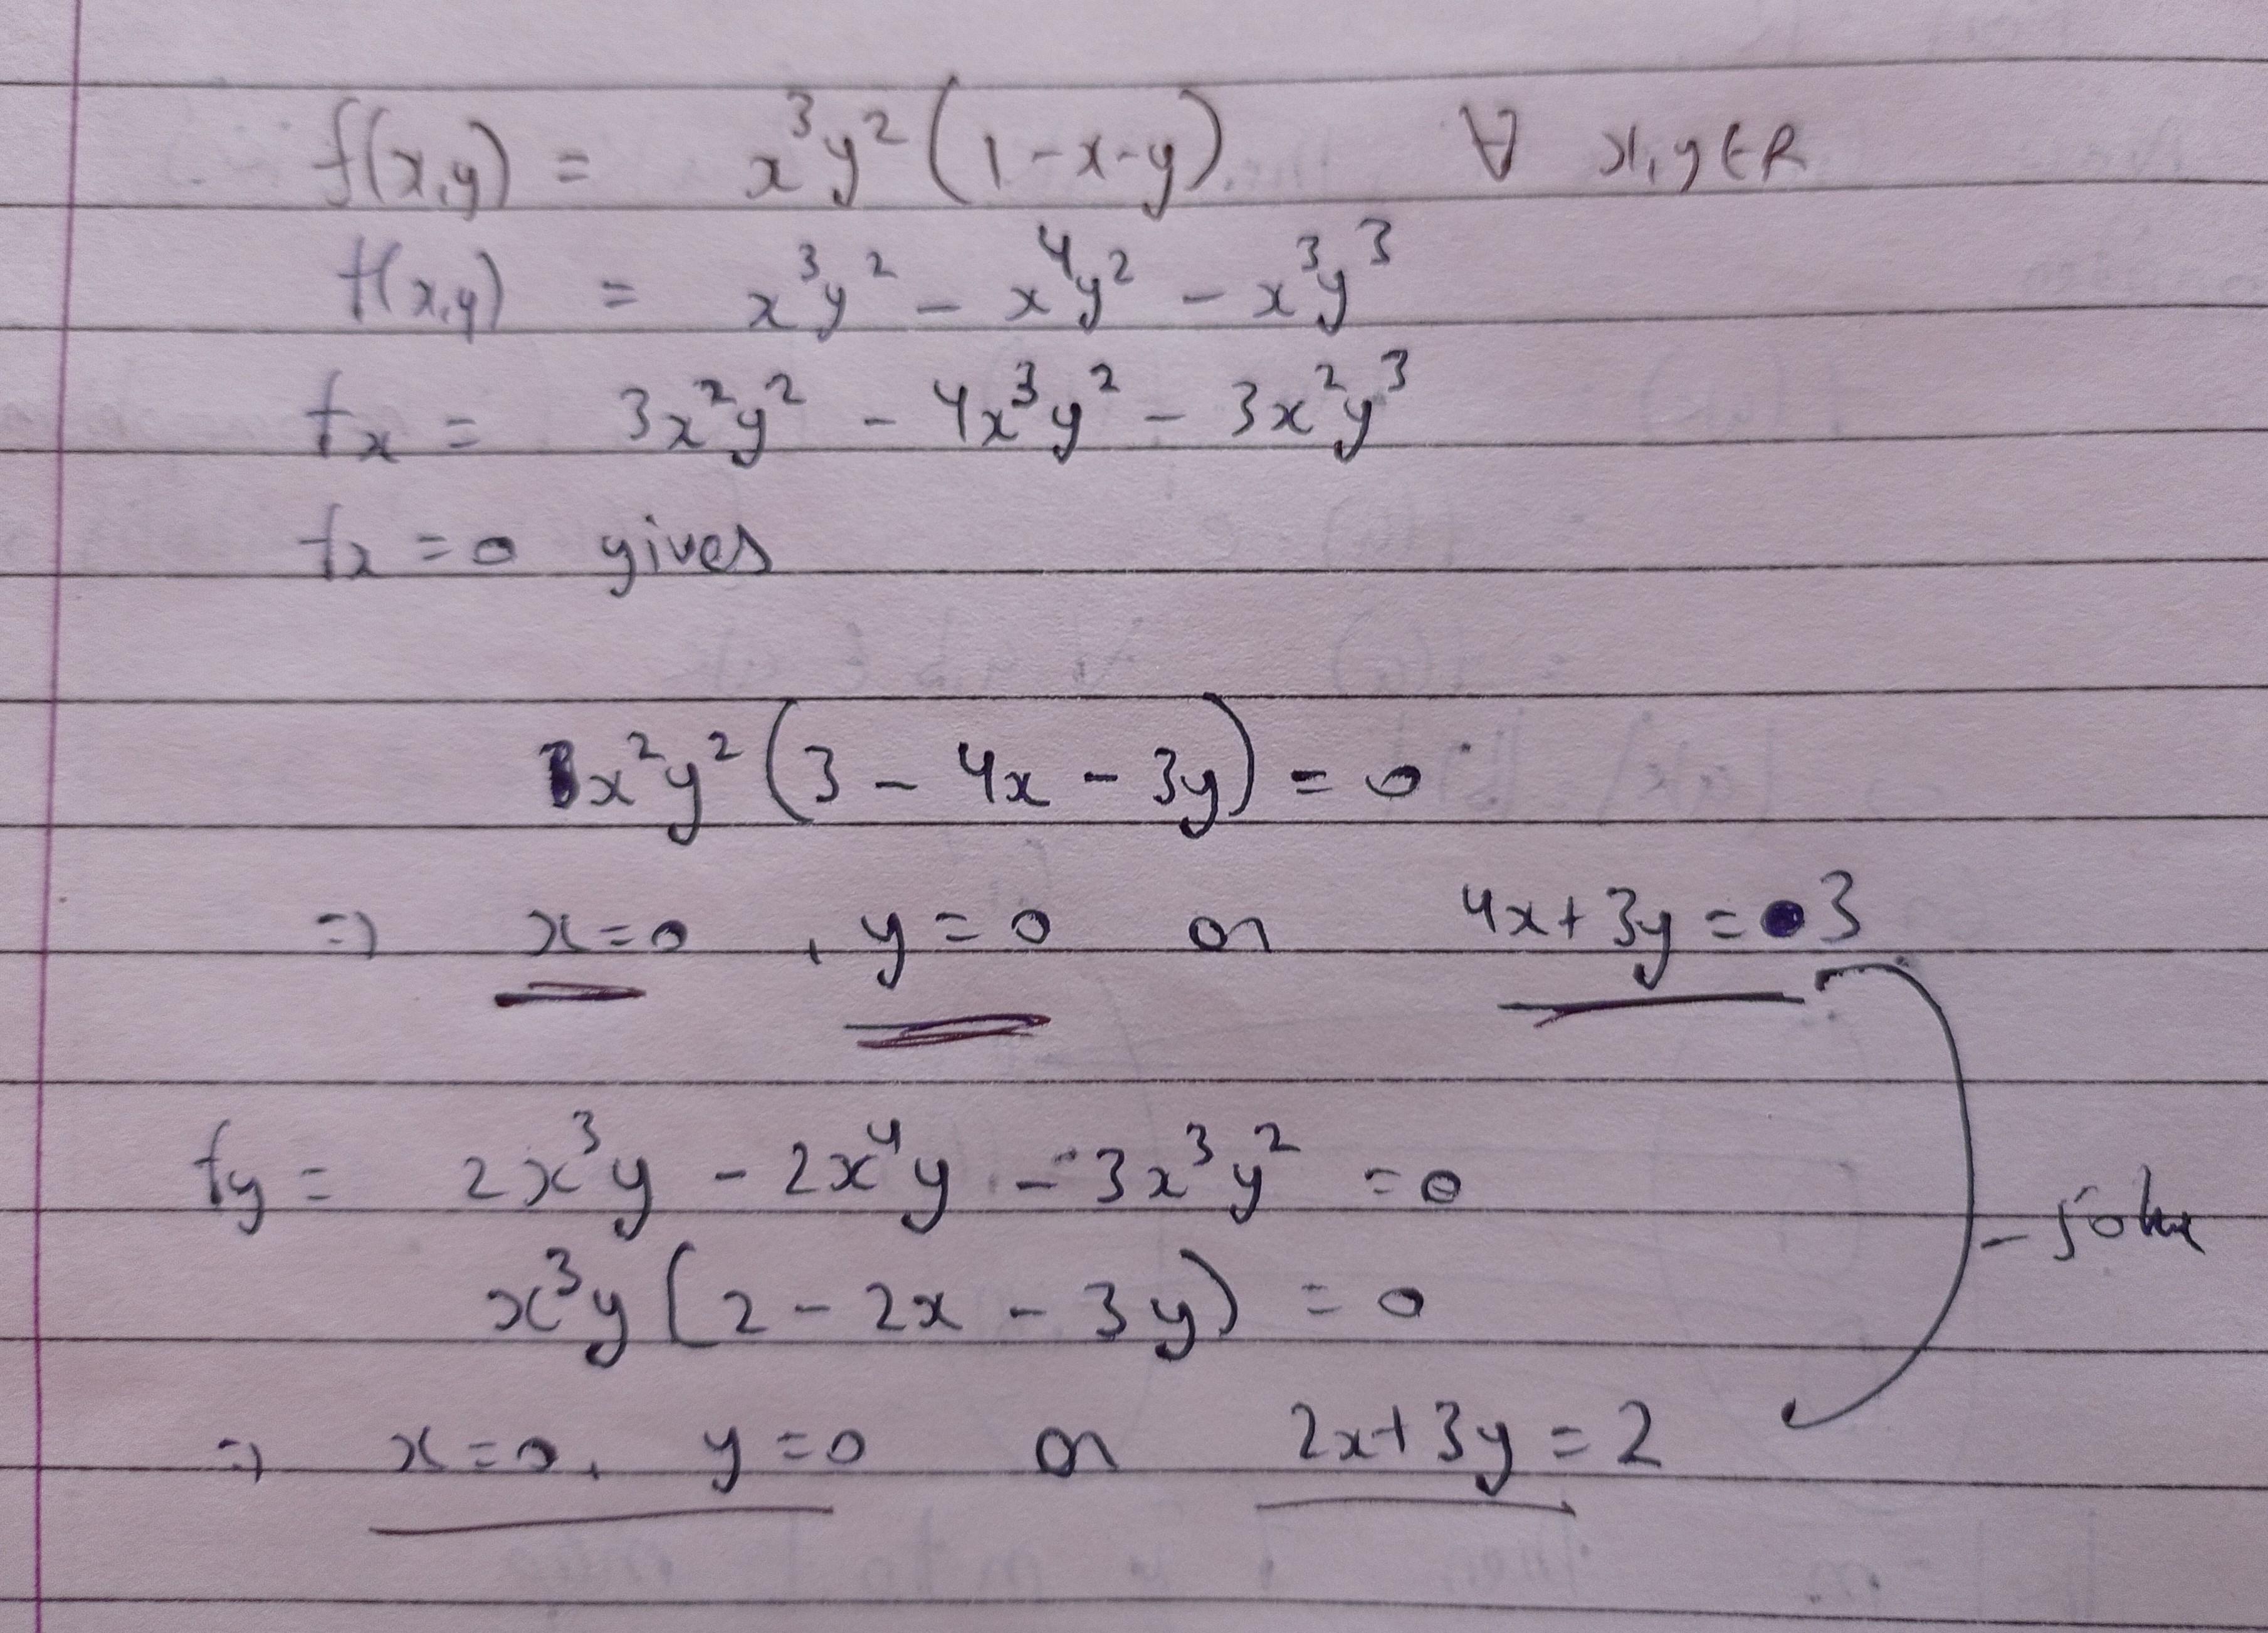 f(x,y) = x³y² (1-x-y) ∀ x,y∈R
f(x,y) = x³y² - x⁴y² - x³y³
fx = 3x²y² - 4x³y² - 3x²y³
fx = 0 gives
x²y² (3 - 4x - 3y) = 0
⇒ x=0 , y=0 or 4x+3y = 3
fy = 2x³y - 2x⁴y - 3x³y² = 0
- solve
x³y (2 - 2x - 3y) = 0
⇒ x=0, y=0 or 2x+3y = 2